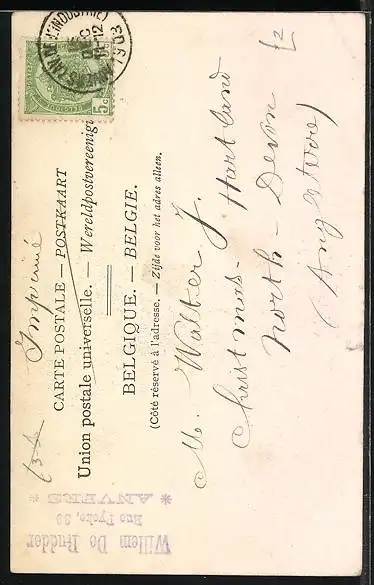 Imprimé
CARTE POSTALE — POSTKAART
Union postale universelle. — Wereldpostvereeniging
BELGIQUE. — BELGIE.
(Côté réservé à l'adresse. — Zijde voor het adres alleen.
5c
1903
M. Walter J.
Christmas - Hartland
North - Devon
(Angleterre)
Willem De Rudder
ANVERS